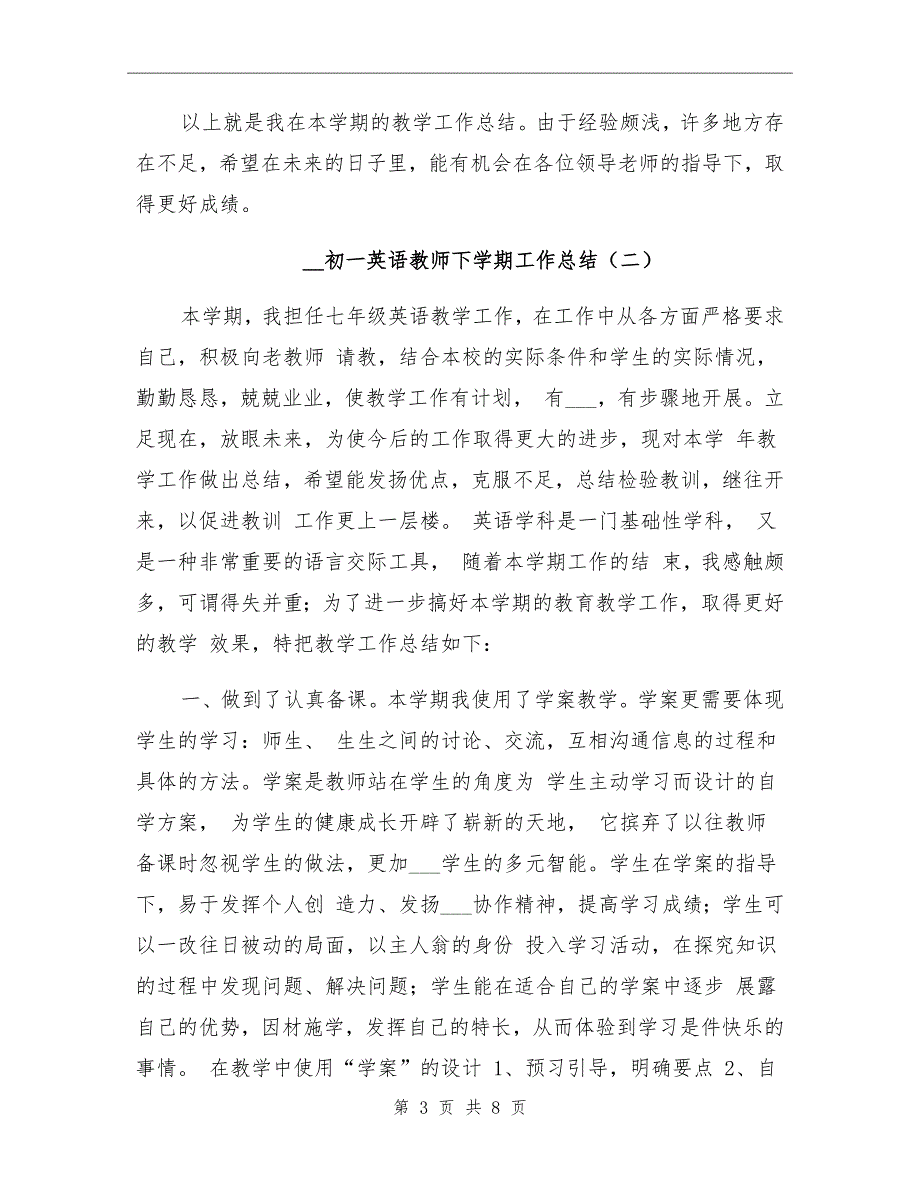 以上就是我在本学期的教学工作总结。由于经验颇浅，许多地方存
在不足，希望在未来的日子里，能有机会在各位领导老师的指导下，取
得更好成绩。
__初一英语教师下学期工作总结（二）
本学期，我担任七年级英语教学工作，在工作中从各方面严格要求
自己，积极向老教师 请教，结合本校的实际条件和学生的实际情况，
勤勤恳恳，兢兢业业，使教学工作有计划， 有___，有步骤地开展。立
足现在，放眼未来，为使今后的工作取得更大的进步，现对本学 年教
学工作做出总结，希望能发扬优点，克服不足，总结检验教训，继往开
来，以促进教训 工作更上一层楼。 英语学科是一门基础性学科， 又
是一种非常重要的语言交际工具， 随着本学期工作的结 束，我感触颇
多，可谓得失并重；为了进一步搞好本学期的教育教学工作，取得更好
的教学 效果，特把教学工作总结如下：
一、做到了认真备课。本学期我使用了学案教学。学案更需要体现
学生的学习：师生、 生生之间的讨论、交流，互相沟通信息的过程和
具体的方法。学案是教师站在学生的角度为 学生主动学习而设计的自
学方案， 为学生的健康成长开辟了崭新的天地， 它摈弃了以往教师
备课时忽视学生的做法，更加___学生的多元智能。学生在学案的指导
下，易于发挥个人创 造力、发扬___协作精神，提高学习成绩；学生可
以一改往日被动的局面，以主人翁的身份 投入学习活动，在探究知识
的过程中发现问题、解决问题；学生能在适合自己的学案中逐步 展露
自己的优势，因材施学，发挥自己的特长，从而体验到学习是件快乐的
事情。 在教学中使用“学案”的设计 1、预习引导，明确要点 2、自
第 3 页 共 8 页